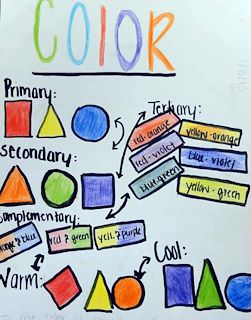 COLOR
Primary:
Tertiary:
red-orange
yellow-orange
red-violet
blue-violet
blue green
yellow-green
Secondary:
Complementary:
orange & blue
red & green
yell. & purple
Warm:
Cool: